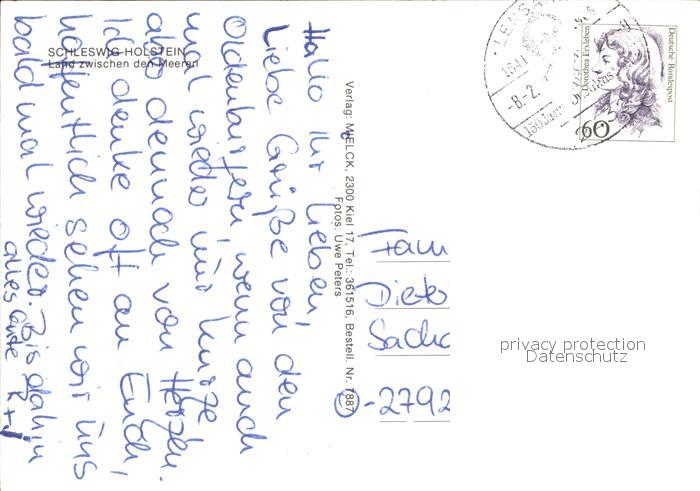 SCHLESWIG-HOLSTEIN
Land zwischen den Meeren
Hallo Ihr Lieben,
Liebe Grüße von den
Oldenburgern, wenn auch
mal wieder nur kurze
also dennoch von Herzen.
Ich denke oft an Euch,
hoffentlich sehen wir uns
bald mal wieder. Bis dahin
alles Gute
Verlag: MIELCK, 2300 Kiel 17, Tel.: 361516, Bestell. Nr. 7887
Fotos: Uwe Peters
Fam
Diet
Sach
-2792
privacy protection
Datenschutz
LENSA
1841
-8.2.
150 Jahre
Deutsche Bundespost
Dorothea Erxleben
60